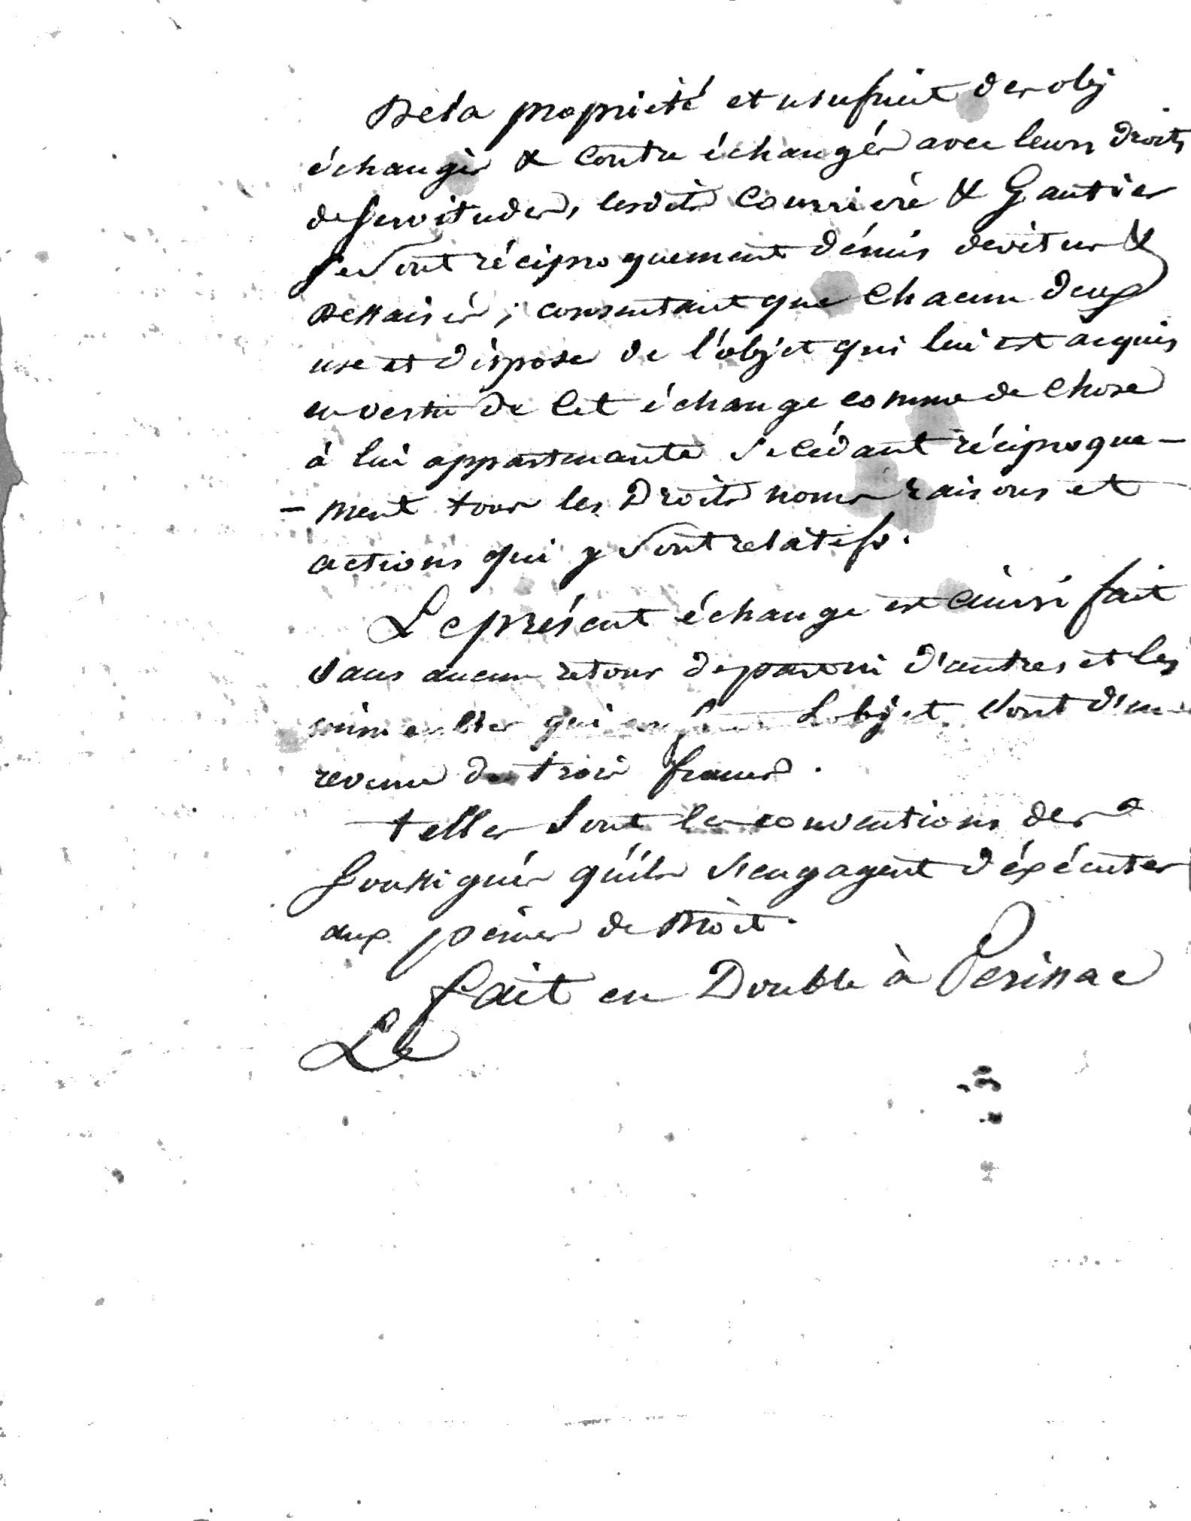 De la propriété et usufruit des obj
échangés & contre échangés avec leurs droits
de servitudes, lesdits Courrieré & Gautier
se sont réciproquement démis devitus &
dessaisis, consentant que chacun deux
use et dispose de l'objet qui lui est acquis
en vertu de cet échange comme de chose
à lui appartenante se cédant réciproque-
-ment tous les droits noms raisons et
actions qui y sont relatifs.
Le présent échange est ainsi fait
sans aucun retour de part ni d'autres et les
immeubles qui en l'objet sont d'un
revenu de trois francs.
telles sont les conventions des
soussignés qu'ils s'engagent d'éxécuter
aux peines de Droit.
fait en Double à Perissac
Le